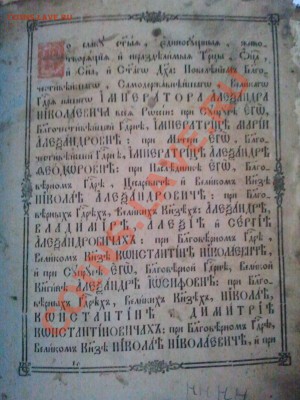 Во славу ст҃ыѧ, є҆диносꙋ́щныѧ, живо-
творѧ́щїѧ и҆ нераздѣ́льныѧ Трⷪ҇цы, Ѻ҆ц҃а̀,
и҆ Сн҃а, и҆ Ст҃а́гѡ Дх҃а: Повелѣ́нїемъ Благо-
честивѣ́йшагѡ Самодержавнѣ́йшагѡ Вели́кагѡ
Гдⷭ҇рѧ на́шегѡ І҆МПЕРА́ТОРА А҆ЛЕѮА́НДРА
НІКОЛА́ЕВИЧА всеѧ̀ Рѡссі́и: при Сꙋпрꙋ́гѣ Є҆ГѠ̀,
Благочестивѣ́йшей Гдⷭ҇рнѣ, І҆МПЕРАТРИ́ЦѢ МАРІ́И
А҆ЛЕѮА́НДРОВНѢ: при Ма́тери Є҆ГѠ̀, Благо-
честивѣ́йшей Гдⷭ҇рнѣ, І҆МПЕРАТРИ́ЦѢ А҆ЛЕѮА́НДРѢ
Ѳ҆ЕО́ДОРОВНѢ: при Наслѣ́дникѣ Є҆ГѠ̀, Благо-
вѣ́рномъ Гдⷭ҇рѣ, Цесаре́вичѣ и҆ Вели́комъ Кнѧ́зѣ
НІКОЛА́Ѣ А҆ЛЕѮА́НДРОВИЧѢ: при Благо-
вѣ́рныхъ Гдⷭ҇рѣхъ, Вели́кихъ Кнѧ́зѣхъ: А҆ЛЕѮА́НДРѢ,
ВЛАДИ́МІРѢ, А҆ЛЕѮІ́И и҆ СЕ́РГІИ
А҆ЛЕѮА́НДРОВИЧАХЪ: при Благовѣ́рномъ Гдⷭ҇рѣ,
Вели́комъ Кнѧ́зѣ КѠНСТАНТІ́НѢ НІКОЛА́ЕВИЧѢ,
и҆ при Сꙋпрꙋ́гѣ Є҆ГѠ̀, Благовѣ́рной Гдⷭ҇рнѣ, Вели́кой
Кнѧги́нѣ А҆ЛЕѮА́НДРѢ І҆Ѡ́СИФОВНѢ: при Благо-
вѣ́рныхъ Гдⷭ҇рѣхъ, Вели́кихъ Кнѧ́зѣхъ, НІКОЛА́Ѣ,
КѠНСТАНТІ́НѢ, ДИМИ́ТРІИ
КѠНСТАНТІ́НОВИЧАХЪ: при Благовѣ́рномъ Гдⷭ҇рѣ,
Вели́комъ Кнѧ́зѣ НІКОЛА́Ѣ НІКОЛА́ЕВИЧѢ, и҆ при